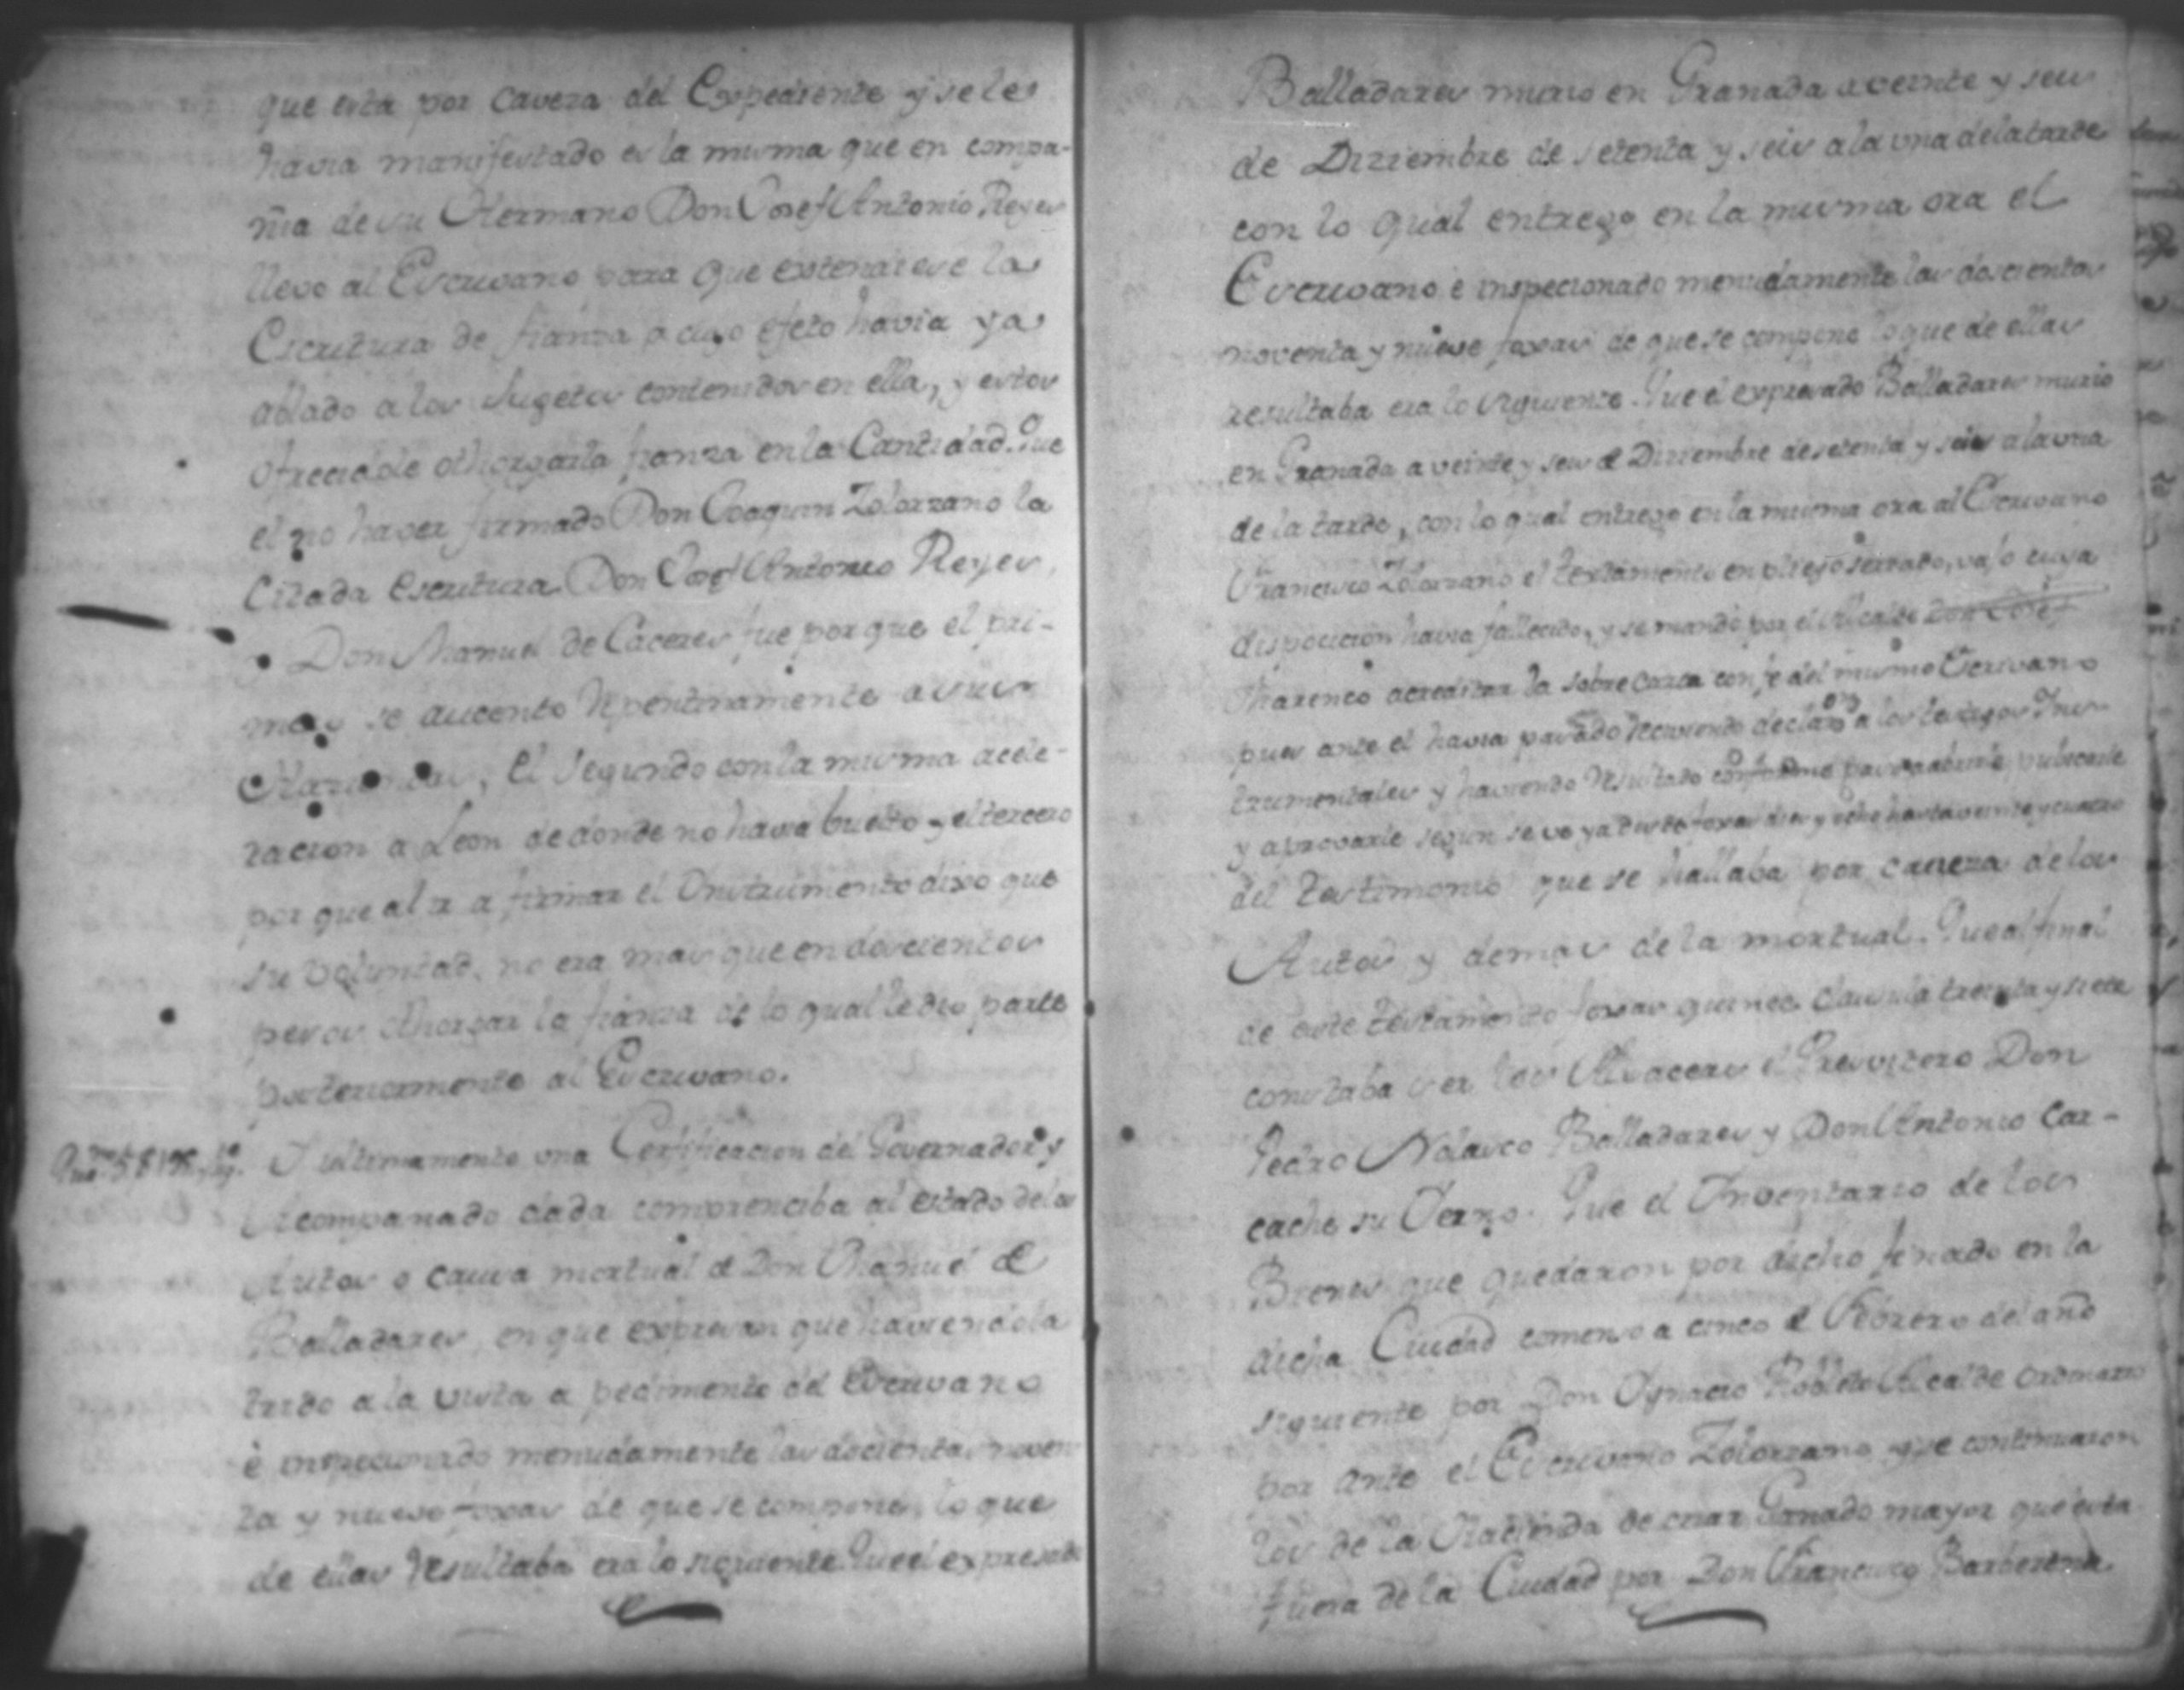 que esta por caveza del Expediente y se les
havia manifestado es la misma que en compa-
ñia de su Hermano Don Josef Antonio Reyes
llevo al Escrivano para que extendiese la
Escritura de fianza a cuyo efeto havia ya
ablado a los Sugetos contenidos en ella, y estos
ofrecidole othorgarla fianza en la Cantidad. Que
el no haver firmado Don Joaquin Zolorzano la
Citada Escritura Don Josef Antonio Reyes,
y Don Manuel de Caceres fue por que el pri-
mero se aucento repentinamente a sus
Haziendas, el Segundo con la misma acele-
racion a Leon de donde no havia buelto y el tercero
por que al ir a firmar el Instrumento dixo que
su voluntad no era mas que en doscientos
pesos othorgar la fianza de lo qual le dio parte
posteriormente al Escrivano.
Y ultimamente una Certificacion del Governador y
Acompañado dada comprenciba al estado de los
Autos o causa mortual de Don Manuel de
Balladares, en que expresan que haviendola
traido a la vista a pedimento del Escrivano
è inspecionado menudamente las docientas noven
ta y nueve foxas de que se compone, lo que
de ellas resultaba era lo siguiente. Que el expresado
Balladares murio en Granada a veinte y seis
de Diziembre de setenta y seis a la una de la tarde
con lo qual entrego en la misma ora el
Escrivano è inspecionado menudamente las doscientas
noventa y nueve foxas de que se compone lo que de ellas
resultaba era lo siguiente. Que el expresado Balladares murio
en Granada a veinte y seis de Diziembre de setenta y seis a la una
de la tarde, con lo qual entrego en la misma ora al Escrivano
Francisco Zolorzano el testamento en pliego serrado, vajo cuya
disposicion havia fallecido, y se mandò por el Alcalde Don Josef
Marenco acreditar la sobre carta con fe del mismo Escrivano
pues ante el havia pasado reciviendo declaron a los testigos Ins-
trumentales y haviendo resultado conforme paso a abrirle publicarle
y aprovarle segun se ve ya desde foxas dies y ocho hasta veinte y cuatro
del testimonio que se hallaba por caveza de los
Autos y demas de la mortual. Que al final
de este testamento foxas quince clausula treinta y siete
constaba ser los Alvaceas el Presvitero Don
Pedro Nolasco Balladares y Don Antonio Car-
cache su Yerno. Que el Inventario de los
Bienes que quedaron por dicho finado en la
dicha Ciudad comenso a cinco de Febrero del año
siguiente por Don Ygnacio Robleto Alcalde ordinario
por ante el Escrivano Zolorzano, que continuaron
los de la Hacienda de criar Ganado mayor que esta
fuera de la Ciudad por Don Francisco Barberena